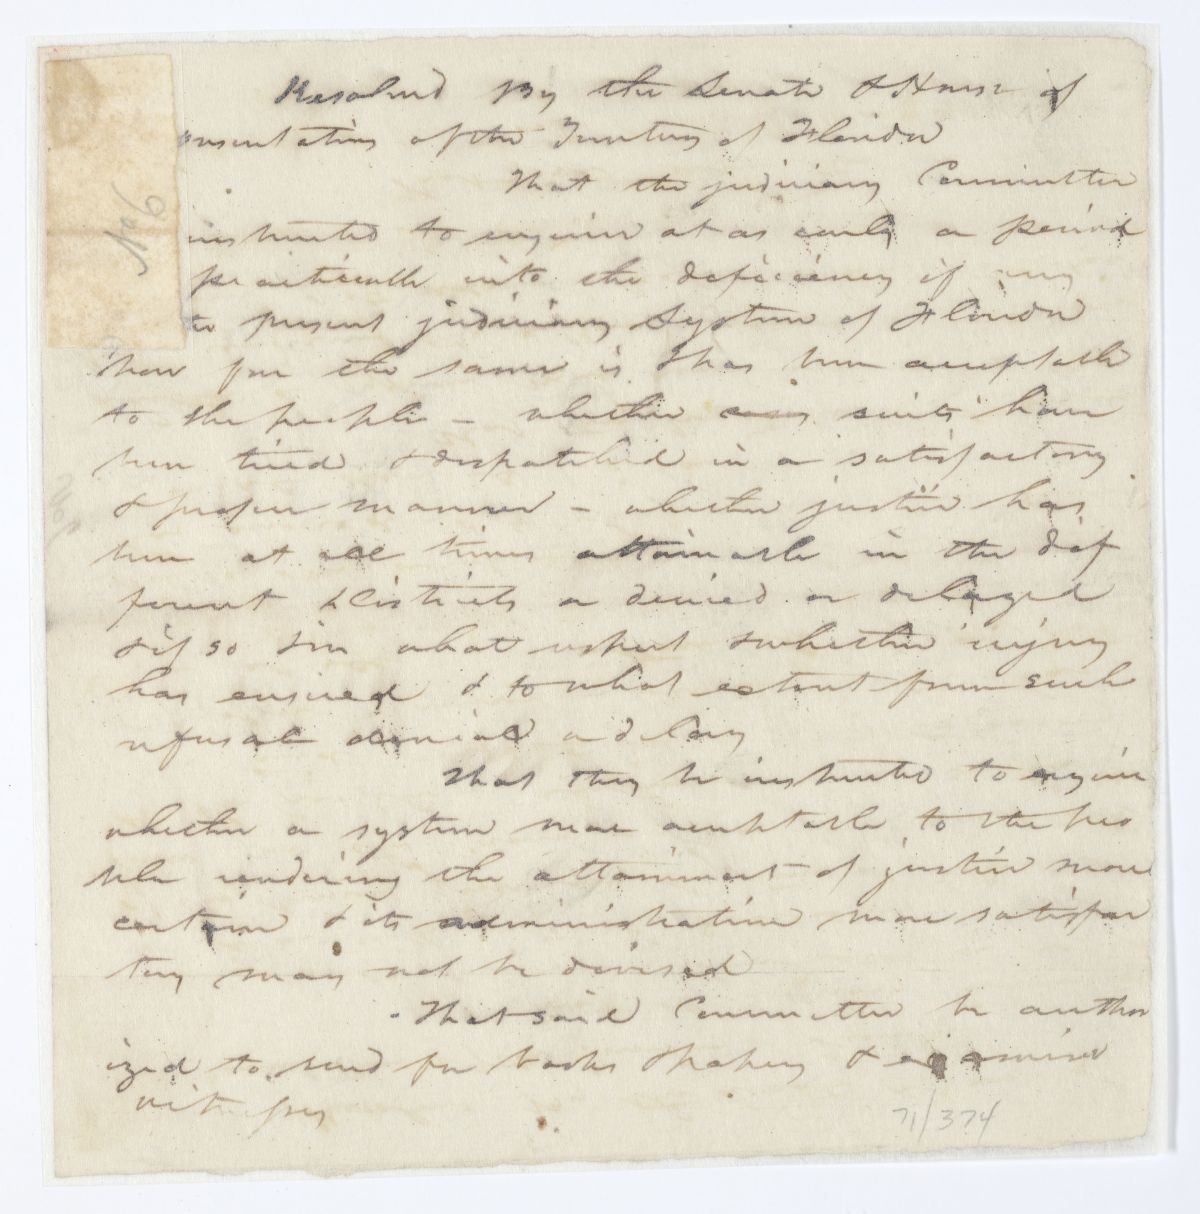 Resolved By the Senate & House of
presentatives of the Territory of Florida
That the judiciary Committee
instructed to enquire at as early a period
practicable into the deficiency if any
the present judiciary System of Florida
how far the same is & has been acceptable
to the people - whether suits have
been tried & dispatched in a satisfactory
& proper manner - whether justice has
been at all times attainable in the dif
ferent districts or denied or delayed
& if so & in what respect & whether injury
has ensued & to what extent from such
refusal denial or delay
That they be instructed to enquire
whether a system more acceptable to the peo
ple rendering the attainment of justice more
certain & its administration more satisfac
tory may not be devised
- That said Committee be author
ized to send for books & papers & examine
witnesses
No 6
71/374